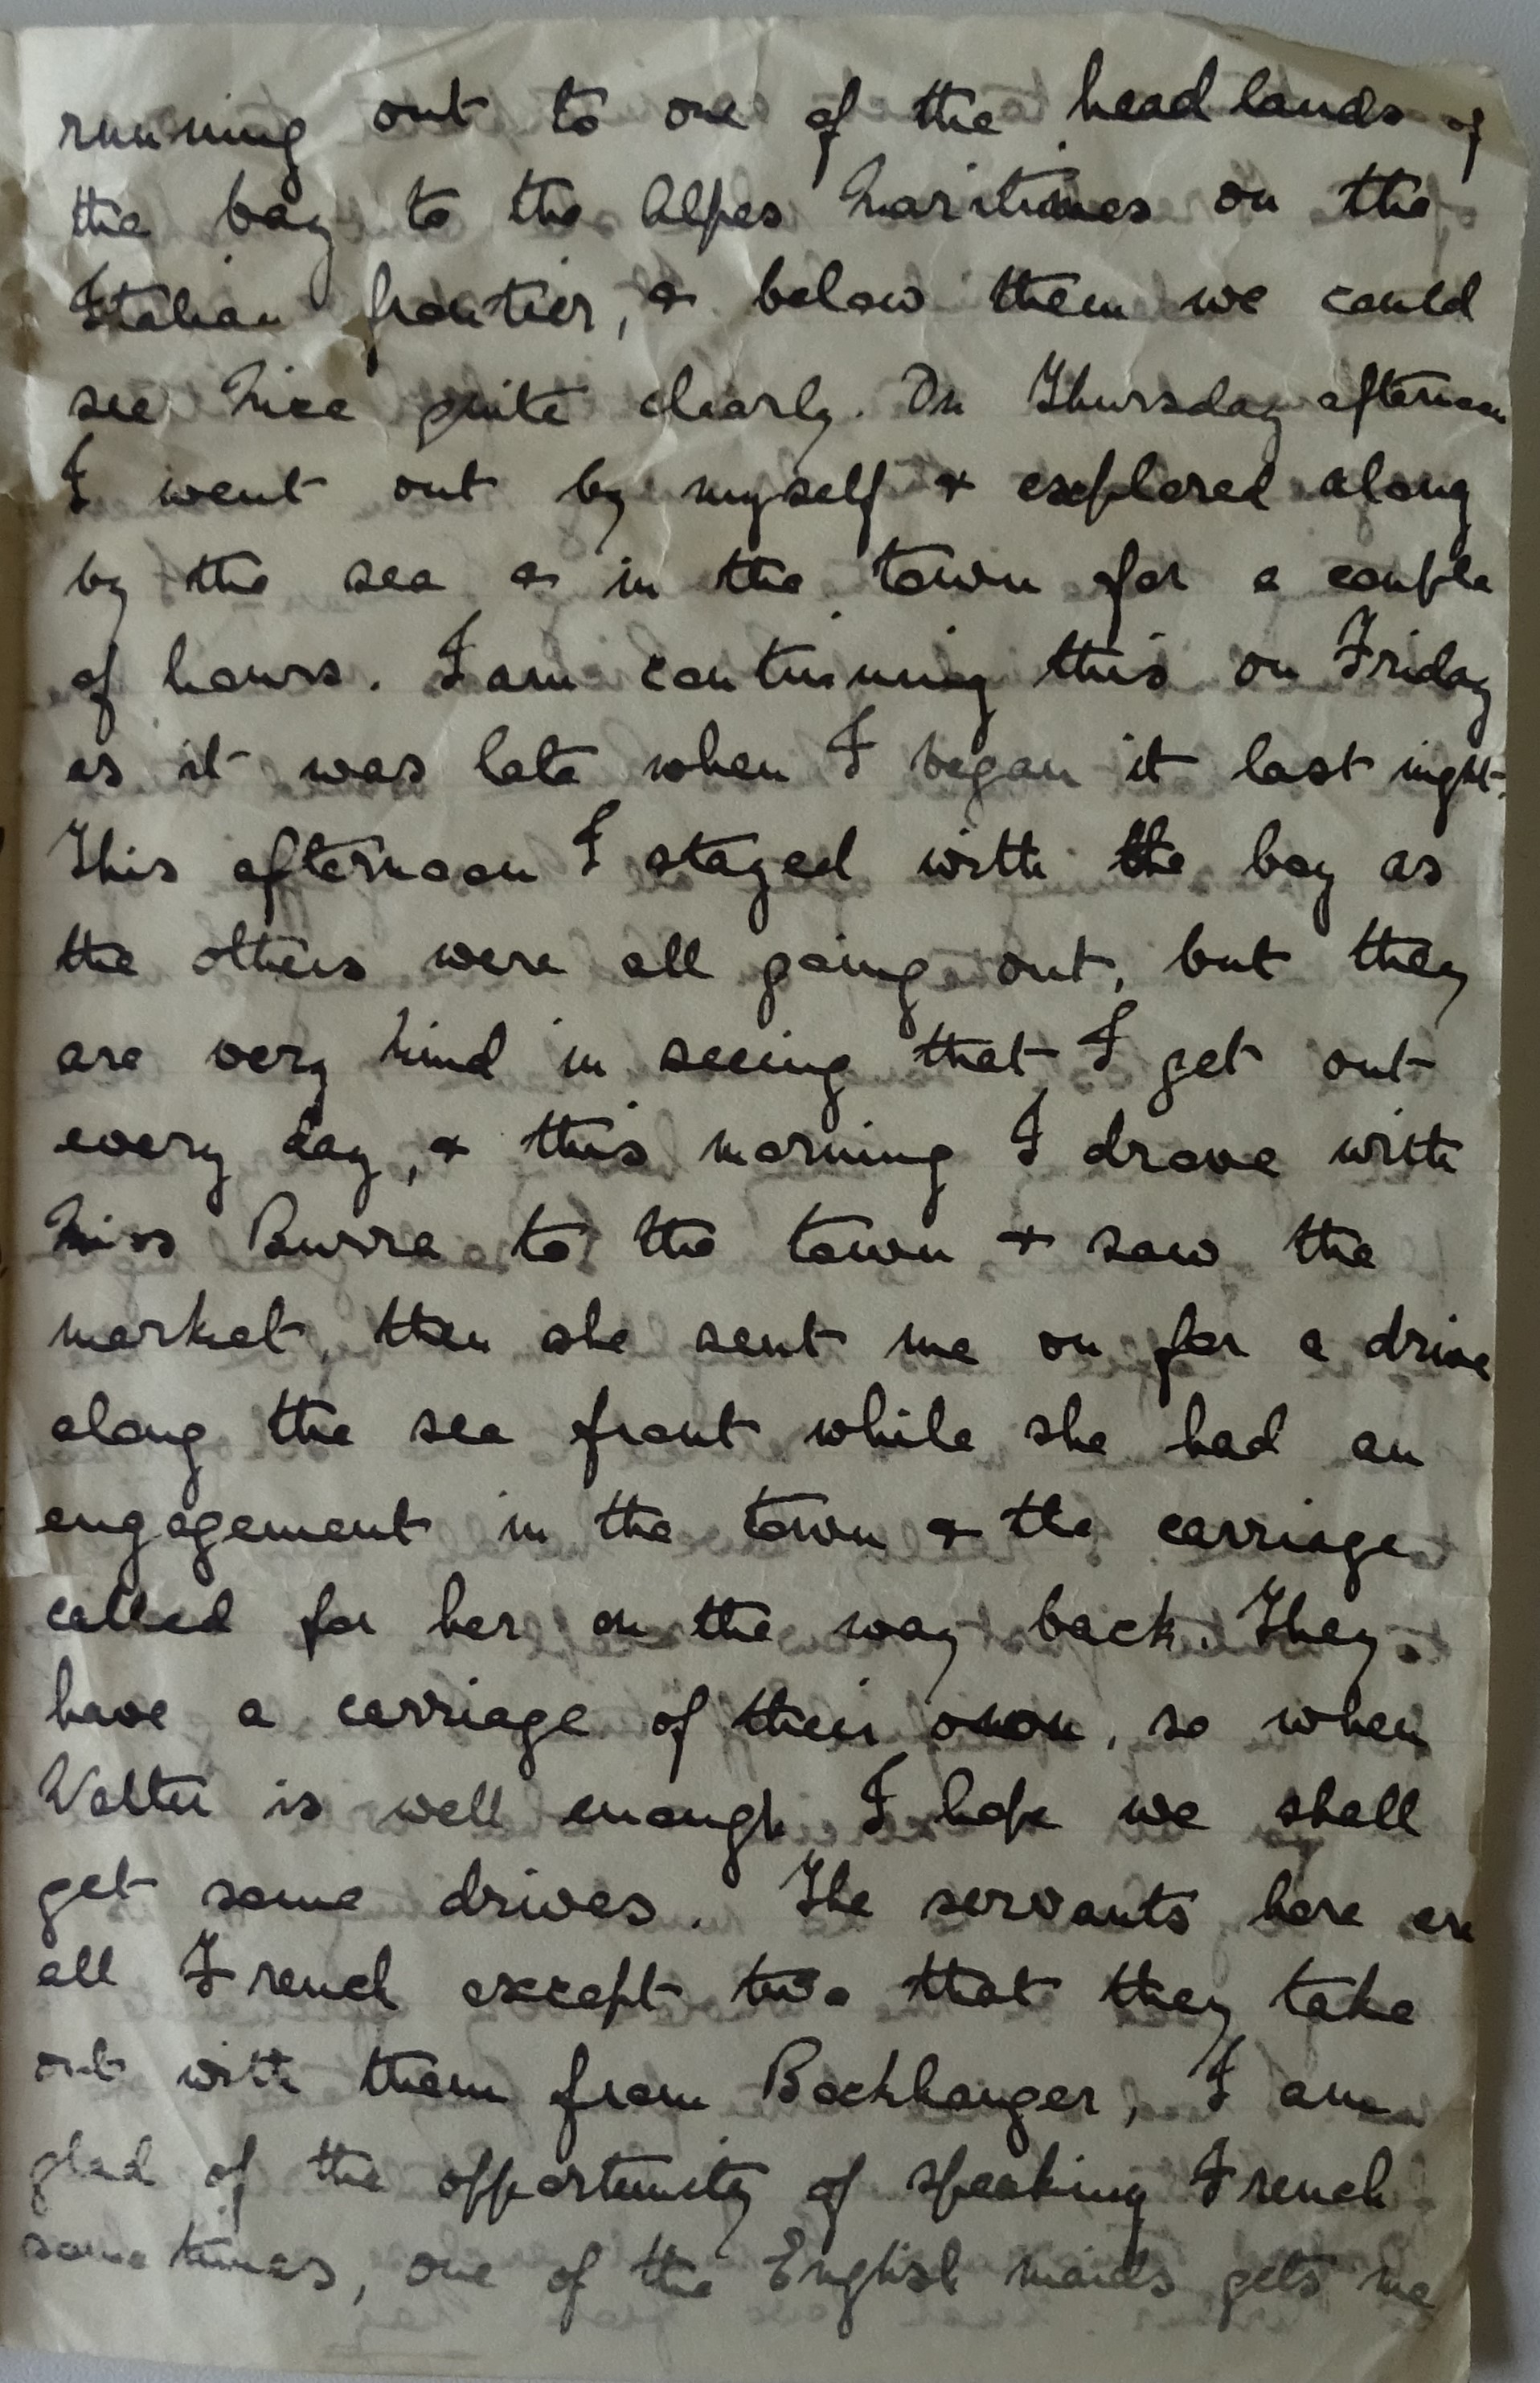 running out to one of the headlands of
the bay to the Alpes Maritimes on the
Italian frontier, & below them we could
see Nice quite clearly. On Thursday afternoon
I went out by myself & explored along
by the sea & in the town for a couple
of hours. I am continuing this on Friday
as it was late when I began it last night.
This afternoon I stayed with the boy as
the others were all going out, but they
are very kind in seeing that I get out
every day, & this morning I drove with
Miss Burra to the town & saw the
market, then she sent me on for a drive
along the sea front while she had an
engagement in the town & the carriage
called for her on the way back. They
have a carriage of their own, so when
Walter is well enough I hope we shall
get some drives. The servants here are
all French except two that they take
out with them from Bockhanger, I am
glad of the opportunity of speaking French
sometimes, one of the English maids gets me